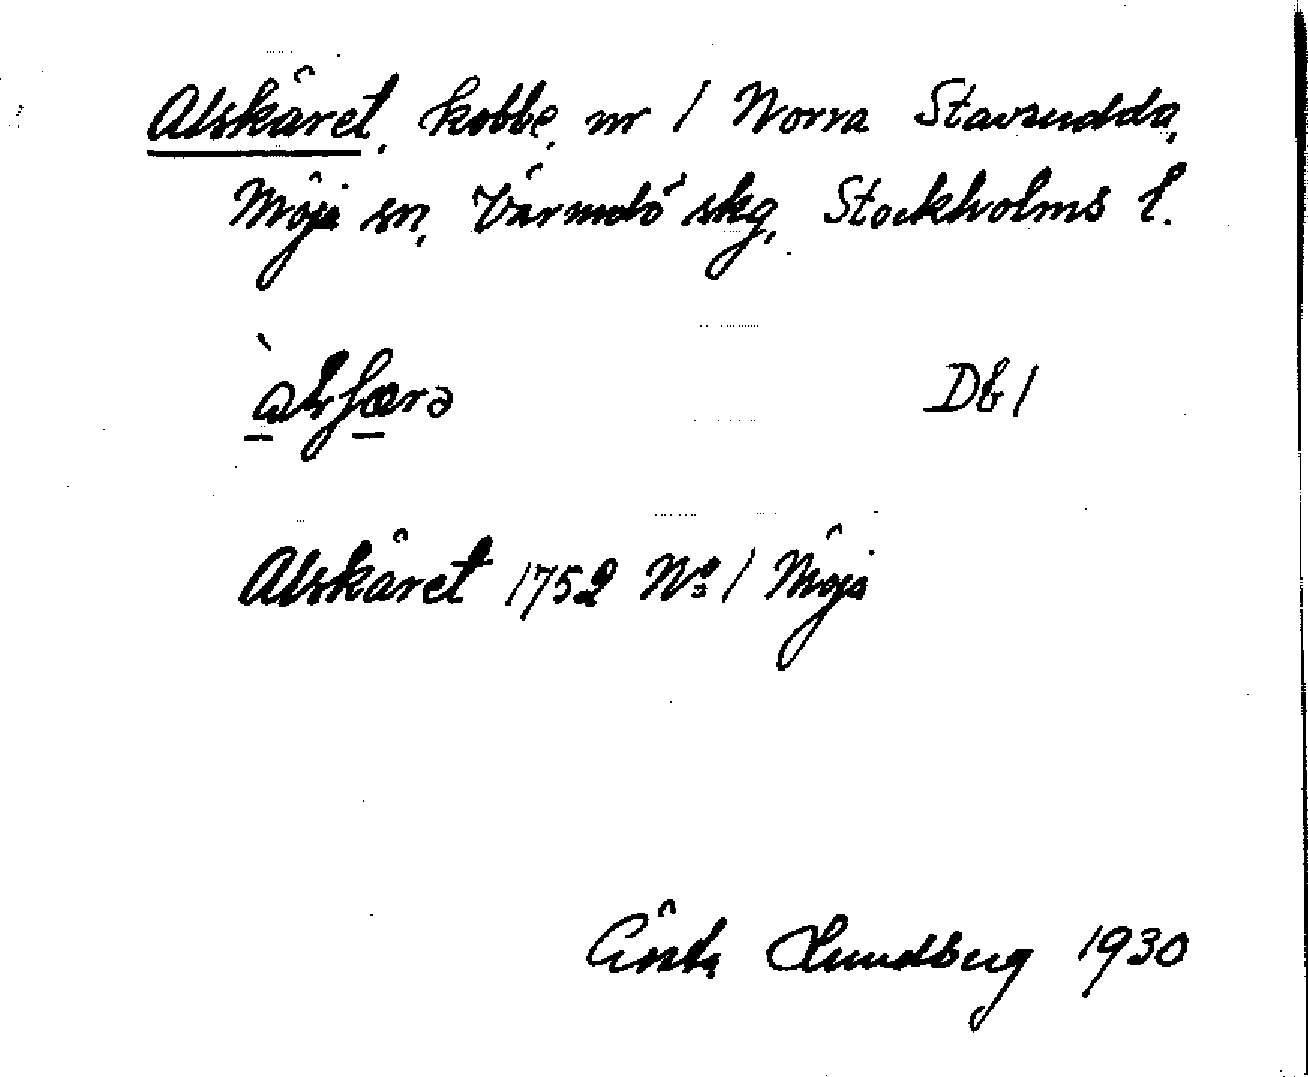 Alskäret, kobbe, nr 1 Norra Stavsudda,
Möja sn, Värmdö skg, Stockholms l.
D&1
Alskäret 1752 No 1 Möja
Gösta Lundberg 1930